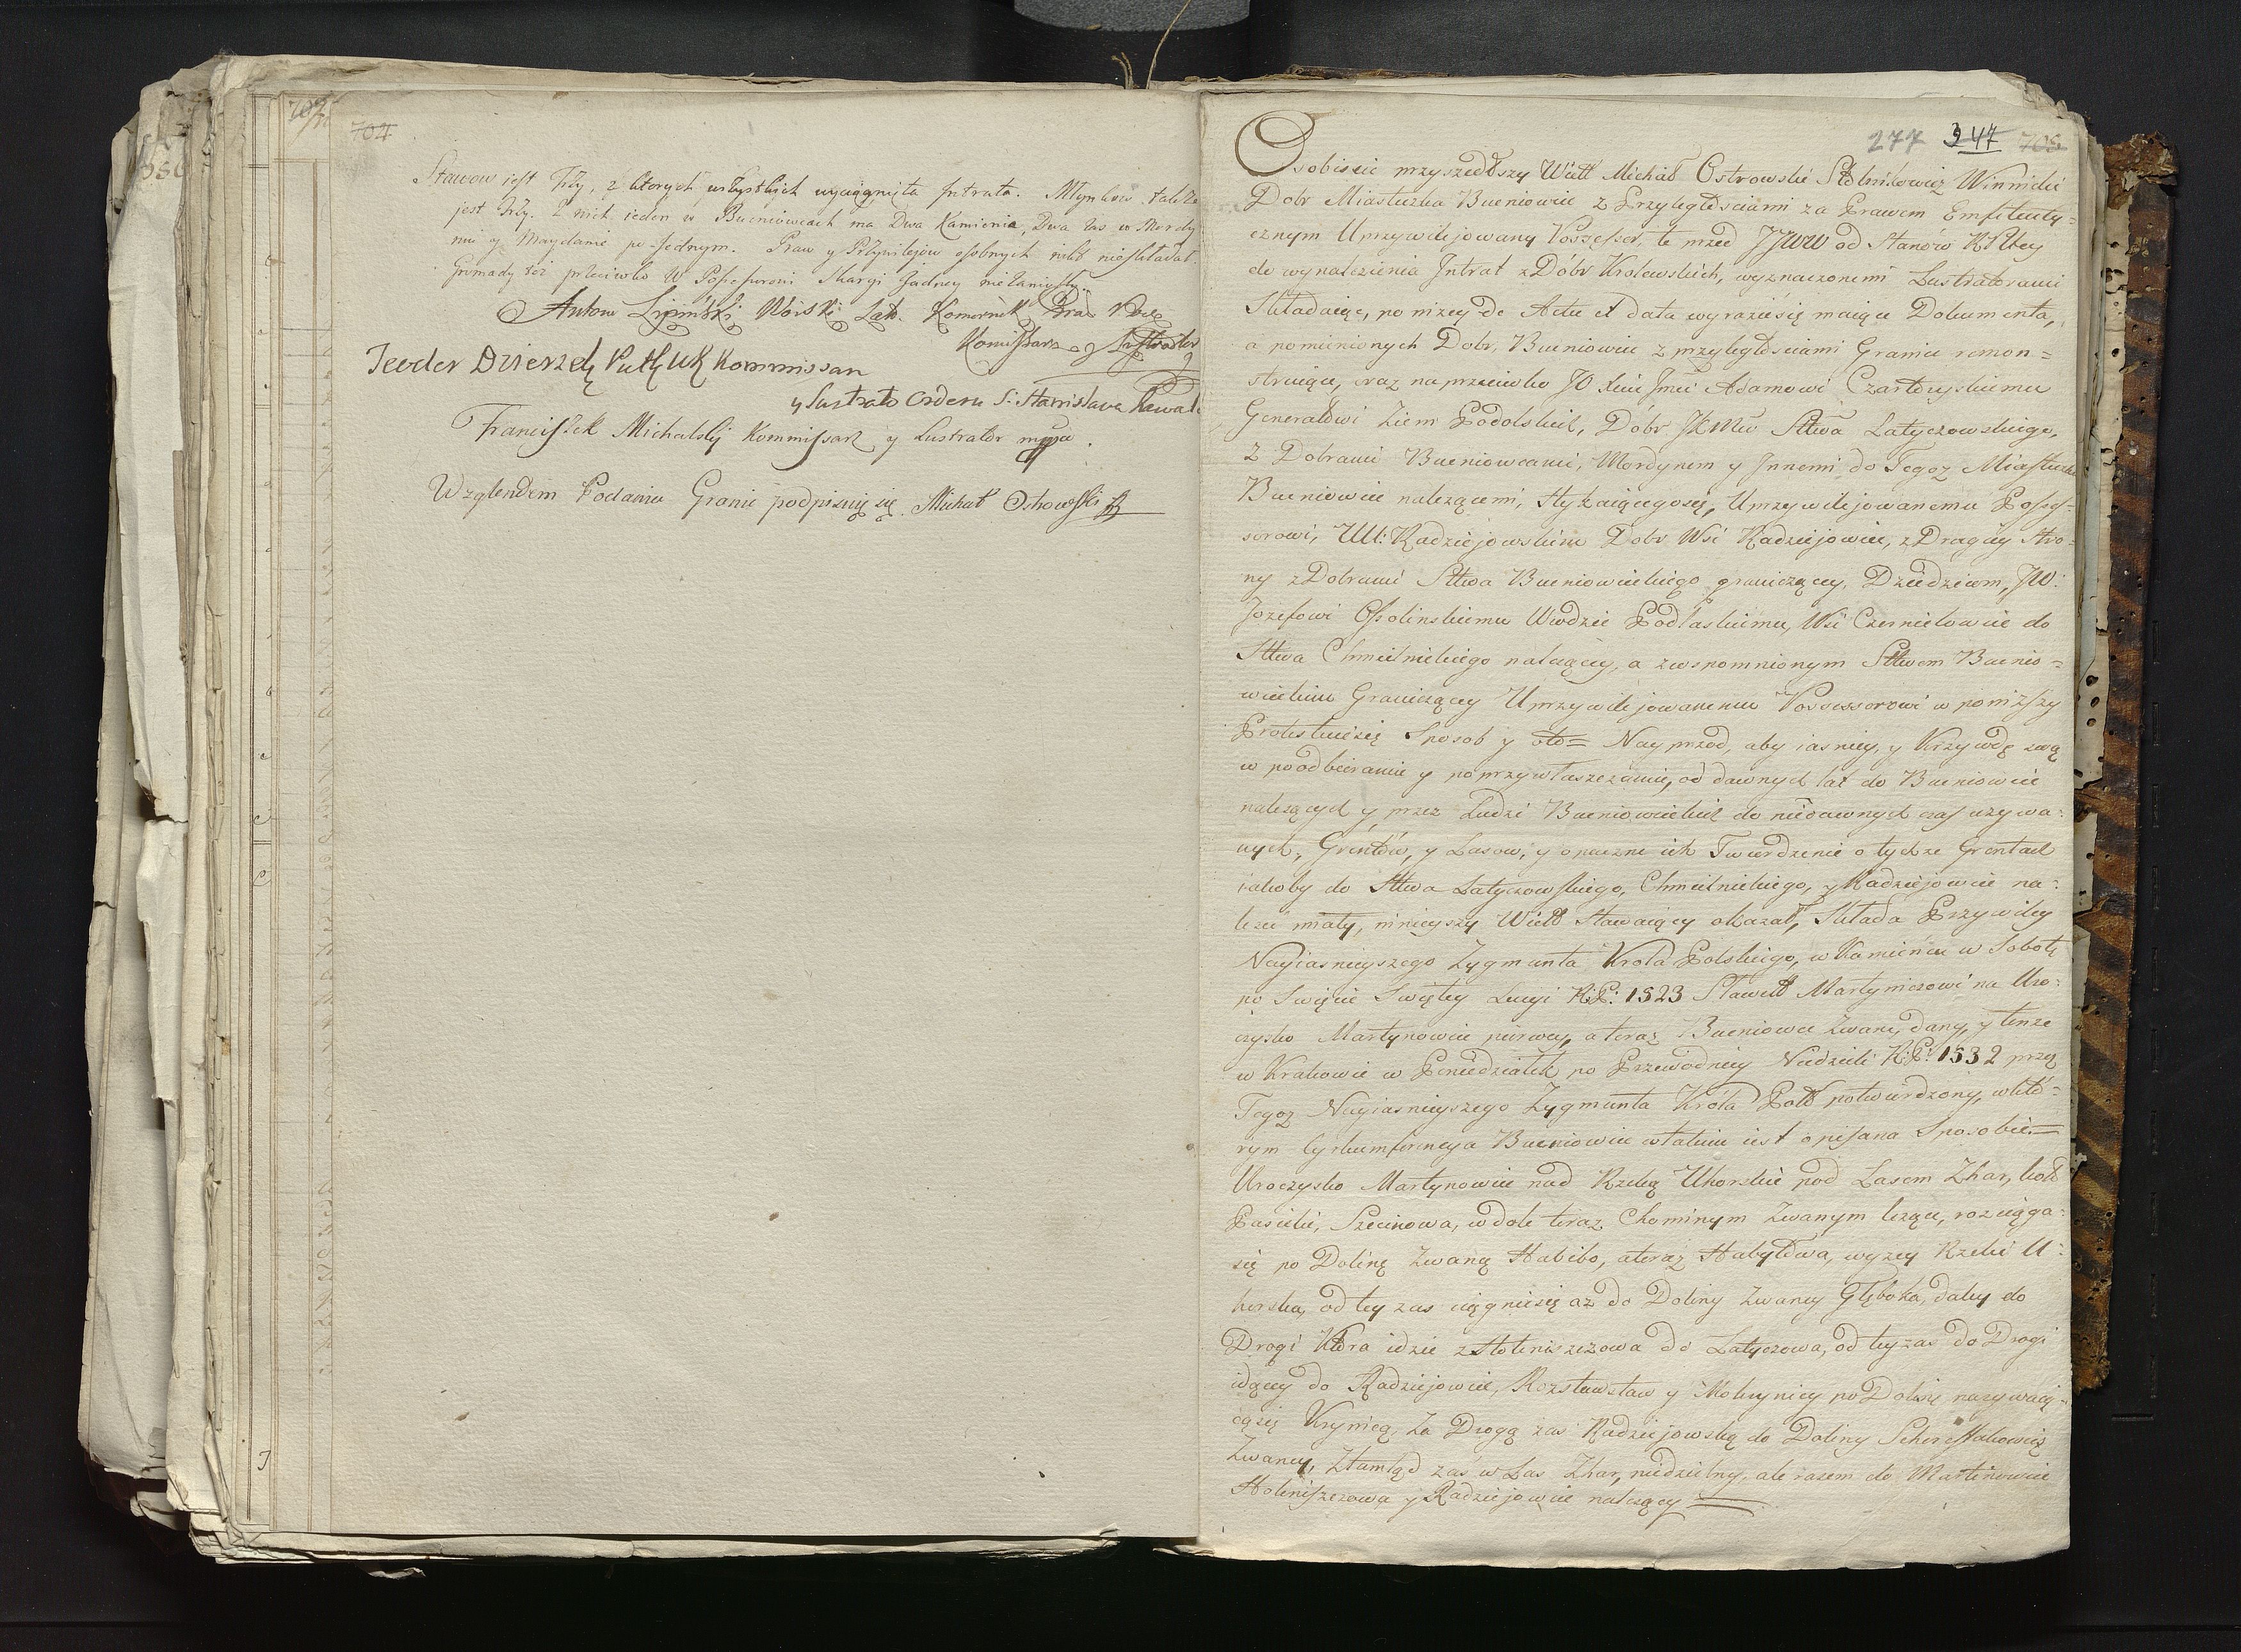 704
Stawow jest Trzy, z ktorych wszystkich wyciągnięta Intrata. Młynkow także
jest Trzy. Z nich ieden w Bueniowcach ma Dwa Kamienie, Dwa zas w Mordy
nie y Maydanie po Jednym. Praw y Przywilejow osobnych nikt nieskładał.
Gromady też przeciwko W Possessorowi Skargi żadney
Antoni Lipiński Woiski Kommissarz y Lustrator
Teodor Dzierzek Kommissarz
y Lustrator Orderu S. Stanisława Kawaler
Franciszek Michalski Kommissarz y Lustrator mppa.
Względem Podania Granic podpisuię się. Michał Ostrowski
277 347 705
Osobiscie przyszedłszy Wiel Michał Ostrowski Winnicki
Dobr Miasteczka Bueniowiec z Przyległościami za Prawem Emfiteuty=
cznym Uprzywilejowany Possessor, te przed JJWW od Stanow RPltey
do wynalezienia Intrat z Dóbr Krolewskich, wyznaczonemi Lustratorami
Składaiąc, po niżey de Actu et data wyrazić się maiące Dokumenta,
a pomienionych Dobr, Bueniowiec z przyległościami Granice remon=
struiące, oraz naprzeciwko JO Xciu Jmci Adamowi Czartoryskiemu
Generałowi Ziem Podolskich, Dóbr JKMci Sttwa Latyczowskiego,
z Dobrami Bueniowcami, Mordynem y Innemi do Tegoż Miasteczka
Bueniowiec należącemi, stykaiącego się, Uprzywilejowanemu Posses=
sorowi, UU: Radziejowskim Dobr Wsi Radziejowiec, z Drugiey Stro=
ny z Dobrami Sttwa Bueniowieckiego graniczącey, Dziedzicom, JW:
Jozefowi Ossolinskiemu Wwdzie Podlaskiemu, Wsi Czernielowiec do
Sttwa Chmielnickiego należącey, a zwspomnionym Sttwem Buenio=
wieckim Graniczącey Uprzywilejowanemu Possessorowi w poniższy
Protestuiesię Sposob y oto= Nayprzod, aby iasniey, y Krzywdę swą
w poodbieranie y poprzywłaszczanie, od dawnych lat do Bueniowiec
należących y przez Ludzi Bueniowieckich do niedawnych czas używa=
nych, Gróntów, y Lasow, y opaczne ich Twierdzenie o tychże Grontach
iakoby do Sttwa Latyczowskiego, Chmielnickiego, y Radziejowiec na=
leżeć miały, ninieyszy Wiel Stawaiący okazał, Składa Przywiley
Nayiasnieyszego Zygmunta Krola Polskiego, w Kamieńcu w Sobotę
po Swięcie Swiętey Lucyi R:P: 1523 Sławet Martyniczowi na Uro=
czysko Martynowce pierwey, a teraz Bueniowce zwane, dany, y tenże
w Krakowie w Poniedziałek po Przewodniey Niedzieli R:P: 1532 przez
Tegoż Nayiasnieyszego Zygmunta Króla Pol potwierdzony, w któ=
rym Cyrkumferencya Bueniowiec w takim iest opisana Sposobie.=
Uroczysko Martynowce nad Rzeką Uhorskie pod Lasem Zhar, koło
Pasieki, Szecinowa, w dole teraz Chominym Zwanym leżące, rozciąga=
się po Dolinę Zwaną Habibo, a teraz Habyłowa, wyżey Rzeki U=
horska, od tey zas ciągniesię aż do Doliny Zwaney Głęboka, daley do
Drogi Która idzie z Holeniszczowa do Latyczowa, od tey zas do Drogi
idącey do Radziejowiec, y Mokrynicy po Dolinę nazywaią=
cąsię Krynicą, Za Drogą zas Radziejowską do Doliny
Zwaney, Ztamtąd zaś w Las Zhar, niedzielny, ale razem do Martinowiec
Holeniszczowa y Radziejowiec należący